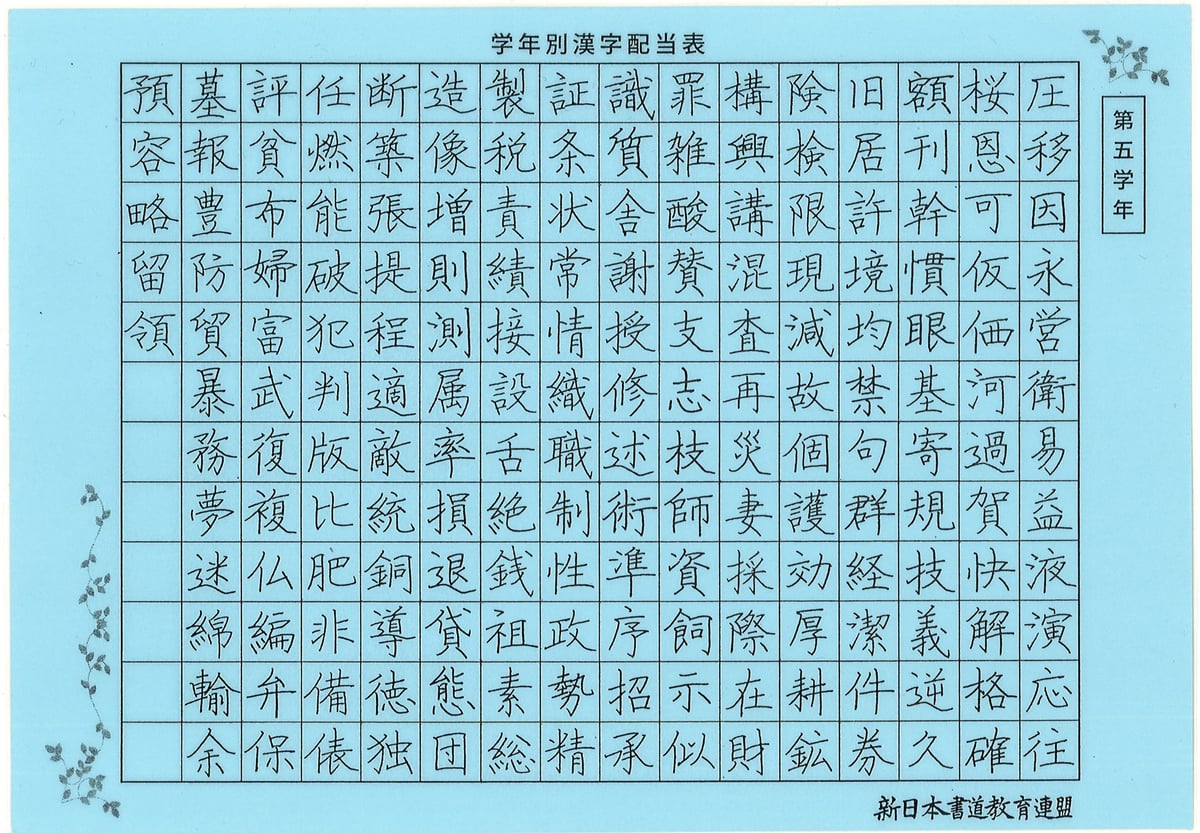 学年別漢字配当表
第五学年
圧移因永営衛易益液演応往
桜恩可仮価河過賀快解格確
額刊幹慣眼基寄規技義逆久
旧居許境均禁句群経潔件券
険検限現減故個護効厚耕鉱
構興講混査再災妻採際在財
罪雑酸賛支志枝師資飼示似
識質舎謝授修述術準序招承
証条状常情織職制性政勢精
製税責績接設舌絶銭祖素総
造像増則測属率損退貸態団
断築張提程適敵統銅導徳独
任燃能破犯判版比肥非備俵
評貧布婦富武復複仏編弁保
墓報豊防貿暴務夢迷綿輸余
預容略留領
新日本書道教育連盟